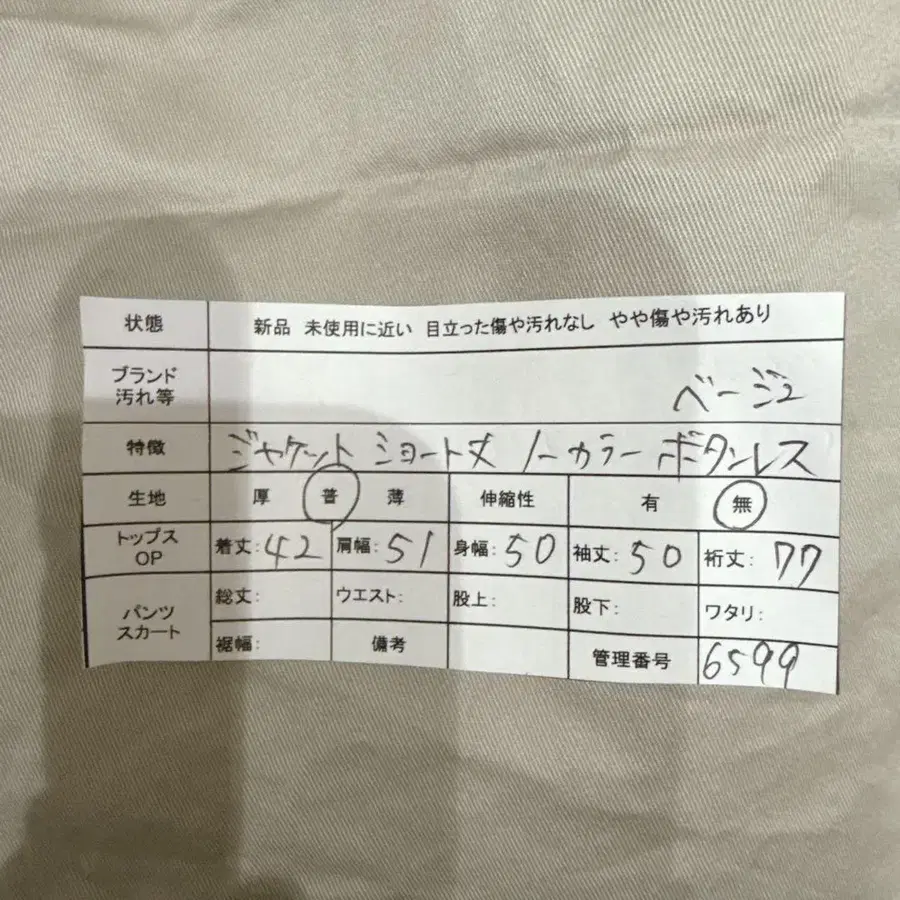 状態 新品 未使用に近い 目立った傷や汚れなし やや傷や汚れあり
ブランド
汚れ等 ベージュ
特徴 ジャケット ショート丈 ノーカラー ボタンレス
生地 厚 普 薄 伸縮性 有 無
トップス
OP 着丈:42 肩幅:51 身幅:50 袖丈:50 裄丈:77
パンツ
スカート 総丈: ウエスト: 股上: 股下: ワタリ:
裾幅: 備考 管理番号 6599